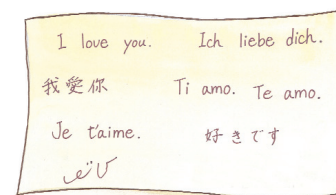 I love you. Ich liebe dich.
我愛你 Ti amo. Te amo.
Je t'aime. 好きです